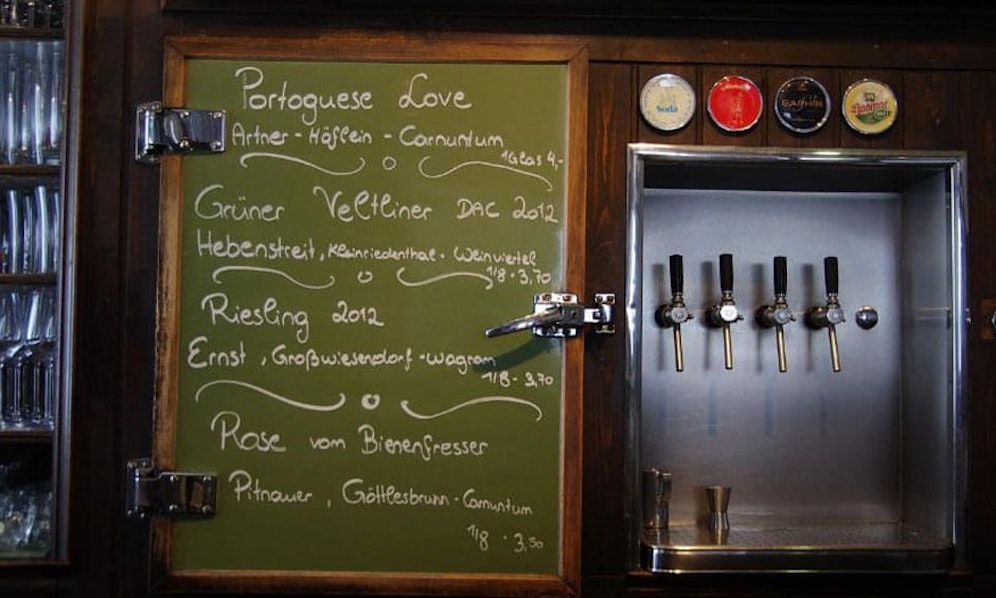 Portoguese Love
Artner - Höflein - Carnuntum
1Glas 4,-
Grüner Veltliner DAC 2012
Hebenstreit, Kleinriedenthal - Weinviertel
1/8 - 3,70
Riesling 2012
Ernst, Großwiesendorf - Wagram
1/8 - 3,70
Rose vom Bienenfresser
Pitnauer, Göttlesbrunn - Carnuntum
1/8 - 3,50
Soda